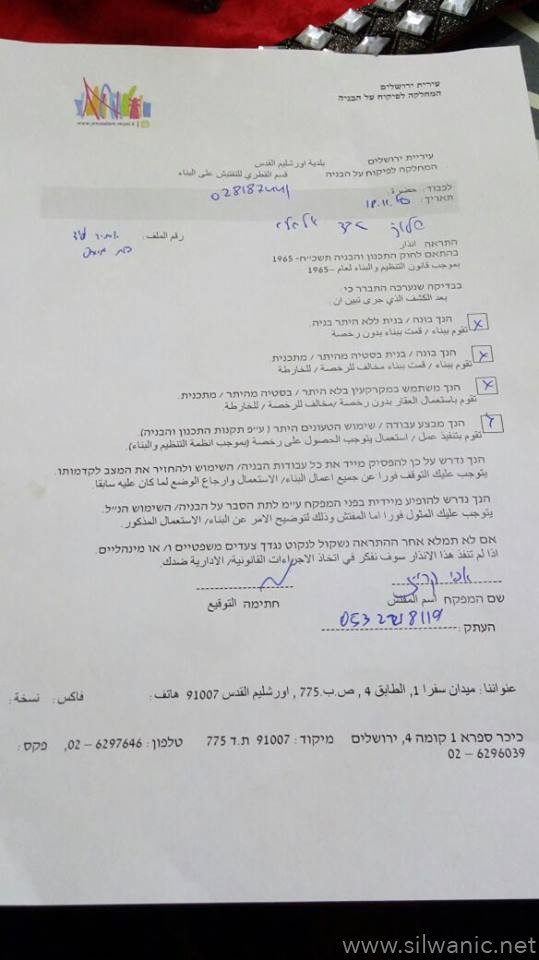 עירית ירושלים
המחלקה לפיקוח על הבניה
www.jerusalem.muni.il
עיריית ירושלים بلدية اورشليم القدس
המחלקה לפיקוח על הבניה قسم القطري للتفتيش على البناء
לכבוד: حضرة 028187441
תאריך: 18.11.
رقم الملف:
התראה انذار
בהתאם לחוק התכנון והבניה תשכ"ח- 1965
بموجب قانون التنظيم والبناء لعام –1965
בבדיקה שנערכה התברר כי
بعد الكشف الذي جرى تبين ان:
הנך בונה / בנית ללא היתר בניה.
تقوم ببناء / قمت ببناء بدون رخصة
הנך בונה / בנית בסטיה מהיתר / מתכנית
تقوم ببناء / قمت ببناء مخالف للرخصة / للخارطة
הנך משתמש במקרקעין בלא היתר / בסטיה מהיתר / מתכנית.
تقوم باستعمال العقار بدون رخصة /مخالف للرخصة / للخارطة.
הנך מבצע עבודה / שימוש הטעונים היתר ( ע"פ תקנות התכנון והבניה).
تقوم بتنفيذ عمل / استعمال يتوجب الحصول على رخصة (بموجب انظمة التنظيم والبناء).
הנך נדרש על כן להפסיק מייד את כל עבודות הבניה/ השימוש ולהחזיר את המצב לקדמותו.
يتوجب عليك التوقف فورا عن جميع اعمال البناء/ الاستعمال وارجاع الوضع لما كان عليه سابقا
הנך נדרש להופיע מיידית בפני המפקח ע"מ לתת הסבר על הבניה/ השימוש הנ"ל.
يتوجب عليك المثول فورا اما المفتش وذلك لتوضيح الامر عن البناء/ الاستعمال المذكور.
אם לא תמלא אחר ההתראה נשקול לנקוט נגדך צעדים משפטיים ו/ או מינהליים.
اذا لم تنفذ هذا الانذار سوف نفكر في اتخاذ الاجراءات القانونية/ الادارية ضدك.
שם המפקח اسم المفتش חתימה التوقيع
העתק:
عنواننا: ميدان سفرا 1, الطابق 4 , ص.ب.775 , اورشليم القدس 91007 هاتف: فاكس: نسخة:
כיכר ספרא 1 קומה 4, ירושלים מיקוד: 91007 ת.ד 775 טלפון: 6297646 – 02, פקס:
02 – 6296039
www.silwanic.net